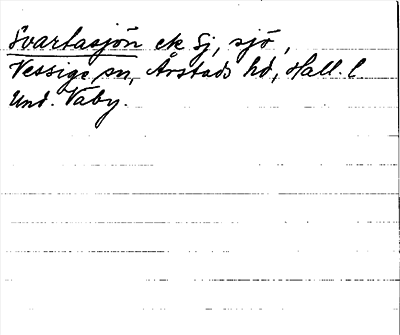 Svartasjön ek Sj, sjö,
Vessige sn, Årstads hd, Hall. l
Und. Vaby.